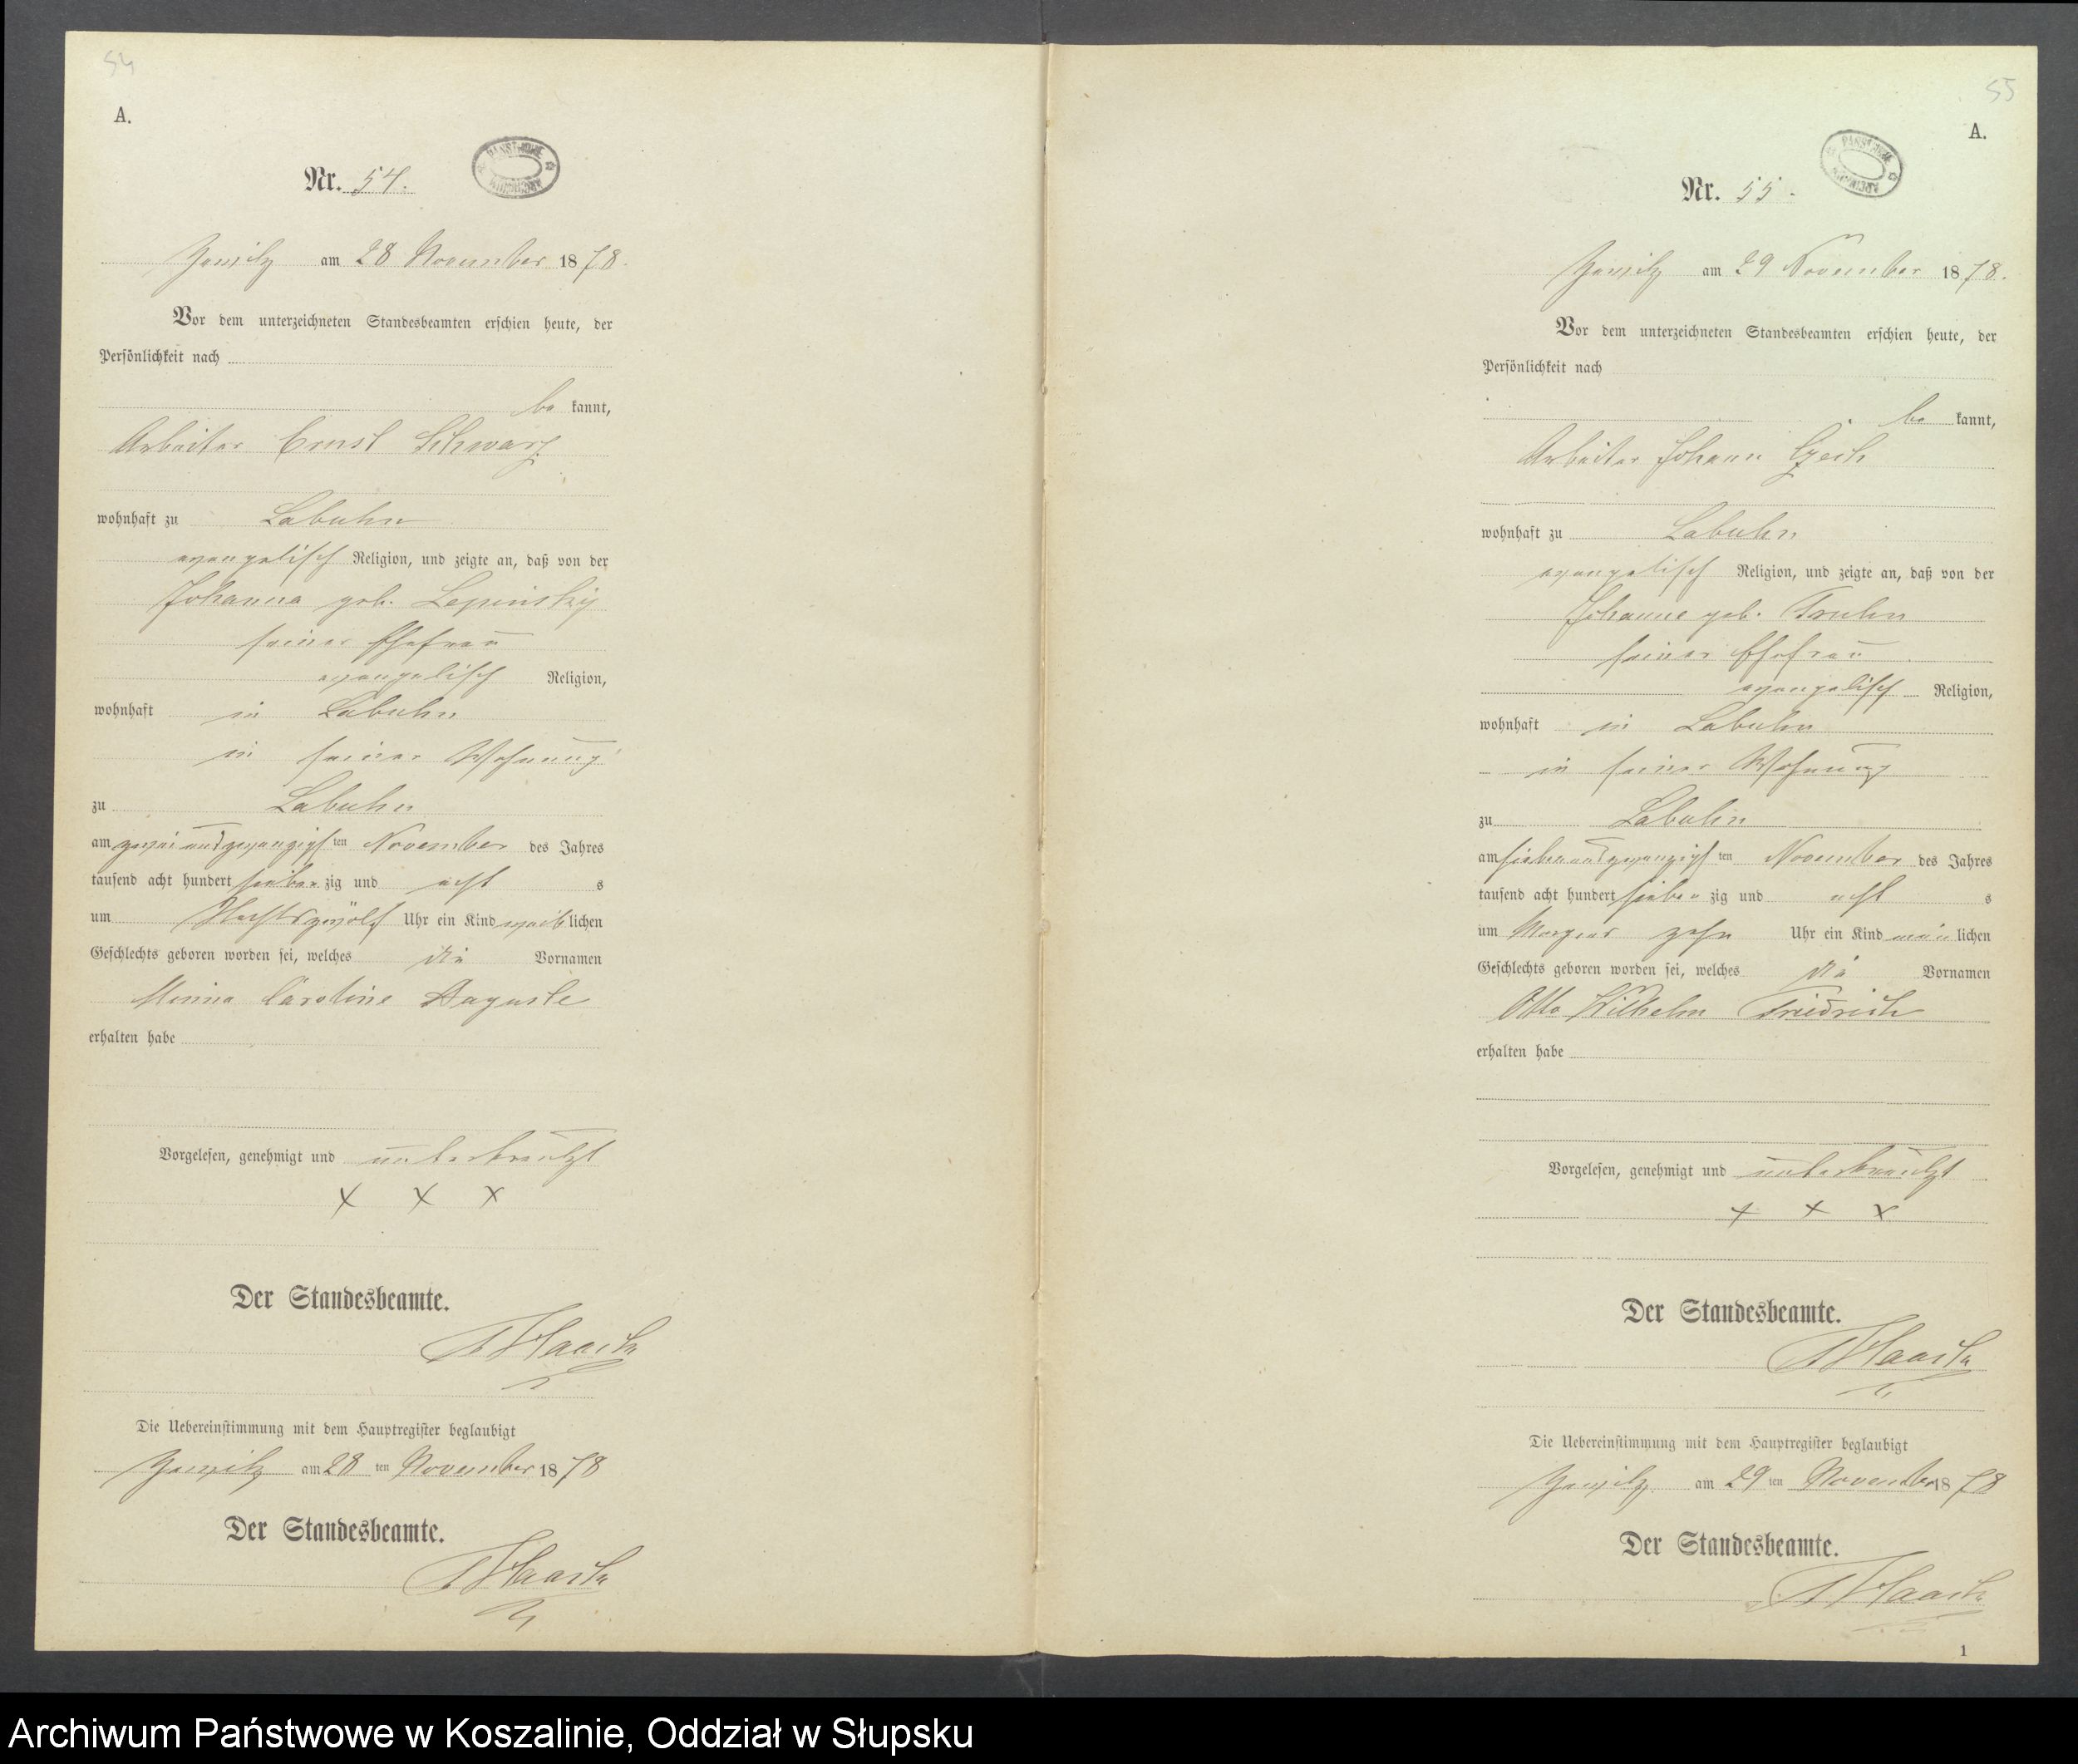 54
A.
Nr. 54.
am 28 November 1878.
Vor dem unterzeichneten Standesbeamten erschien heute, der
Persönlichkeit nach
be kannt,
Arbeiter Ernst Schwarz
wohnhaft zu Labuhn
evangelisch Religion, und zeigte an, daß von der
Johanna geb. Lepinsky
seiner Ehefrau
evangelisch Religion,
wohnhaft in Labuhn
in seiner Wohnung
zu Labuhn
am zweiundzwanzigsten November des Jahres
tausend acht hundert siebenzig und acht s
um Nachts zwölf Uhr ein Kind weiblichen
Geschlechts geboren worden sei, welches die Vornamen
Minna Caroline Auguste
erhalten habe
Vorgelesen, genehmigt und unterkreutzt
x x x
Der Standesbeamte.
Die Uebereinstimmung mit dem Hauptregister beglaubigt
am 28 ten November 1878
Der Standesbeamte.
55
A.
Nr. 55.
am 29 November 1878.
Vor dem unterzeichneten Standesbeamten erschien heute, der
Persönlichkeit nach
be kannt,
Arbeiter Johann
wohnhaft zu Labuhn
evangelisch Religion, und zeigte an, daß von der
Johanne geb. Truhn
seiner Ehefrau
evangelisch Religion,
wohnhaft in Labuhn
in seiner Wohnung
zu Labuhn
am siebenundzwanzigsten November des Jahres
tausend acht hundert siebenzig und acht s
um Morgens zehn Uhr ein Kind mänlichen
Geschlechts geboren worden sei, welches die Vornamen
Otto Wilhelm Friedrich
erhalten habe
Vorgelesen, genehmigt und unterkreutzt
x x x
Der Standesbeamte.
Die Uebereinstimmung mit dem Hauptregister beglaubigt
am 29 ten November 1878
Der Standesbeamte.
1
Archiwum Państwowe w Koszalinie, Oddział w Słupsku